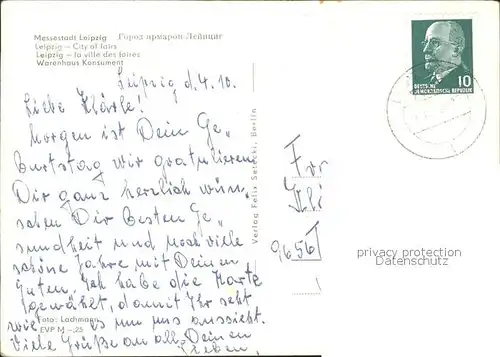 Messestadt Leipzig Город ярмарок Лейпциг
Leipzig – City of fairs
Leipzig – la ville des foires
Warenhaus Konsument
Leipzig d. 4. 10.
Liebe Klärle!
Morgen ist Dein Ge„
burtstag wir gratulieren
Dir ganz herzlich wün„
schen Dir besten Ge„
sundheit und noch viele
schöne Jahre mit Deinen
Guten. Ich habe die Karte
gewählt, damit Ihr seht
wie es um uns aussieht.
Viele Grüße an all Deinen
Lieben,
Foto: Lachmann
EVP M –,25
Verlag Felix Setecki, Berlin
10
DEUTSCHE
DEMOKRATISCHE REPUBLIK
Fr
Klä
9656
privacy protection
Datenschutz